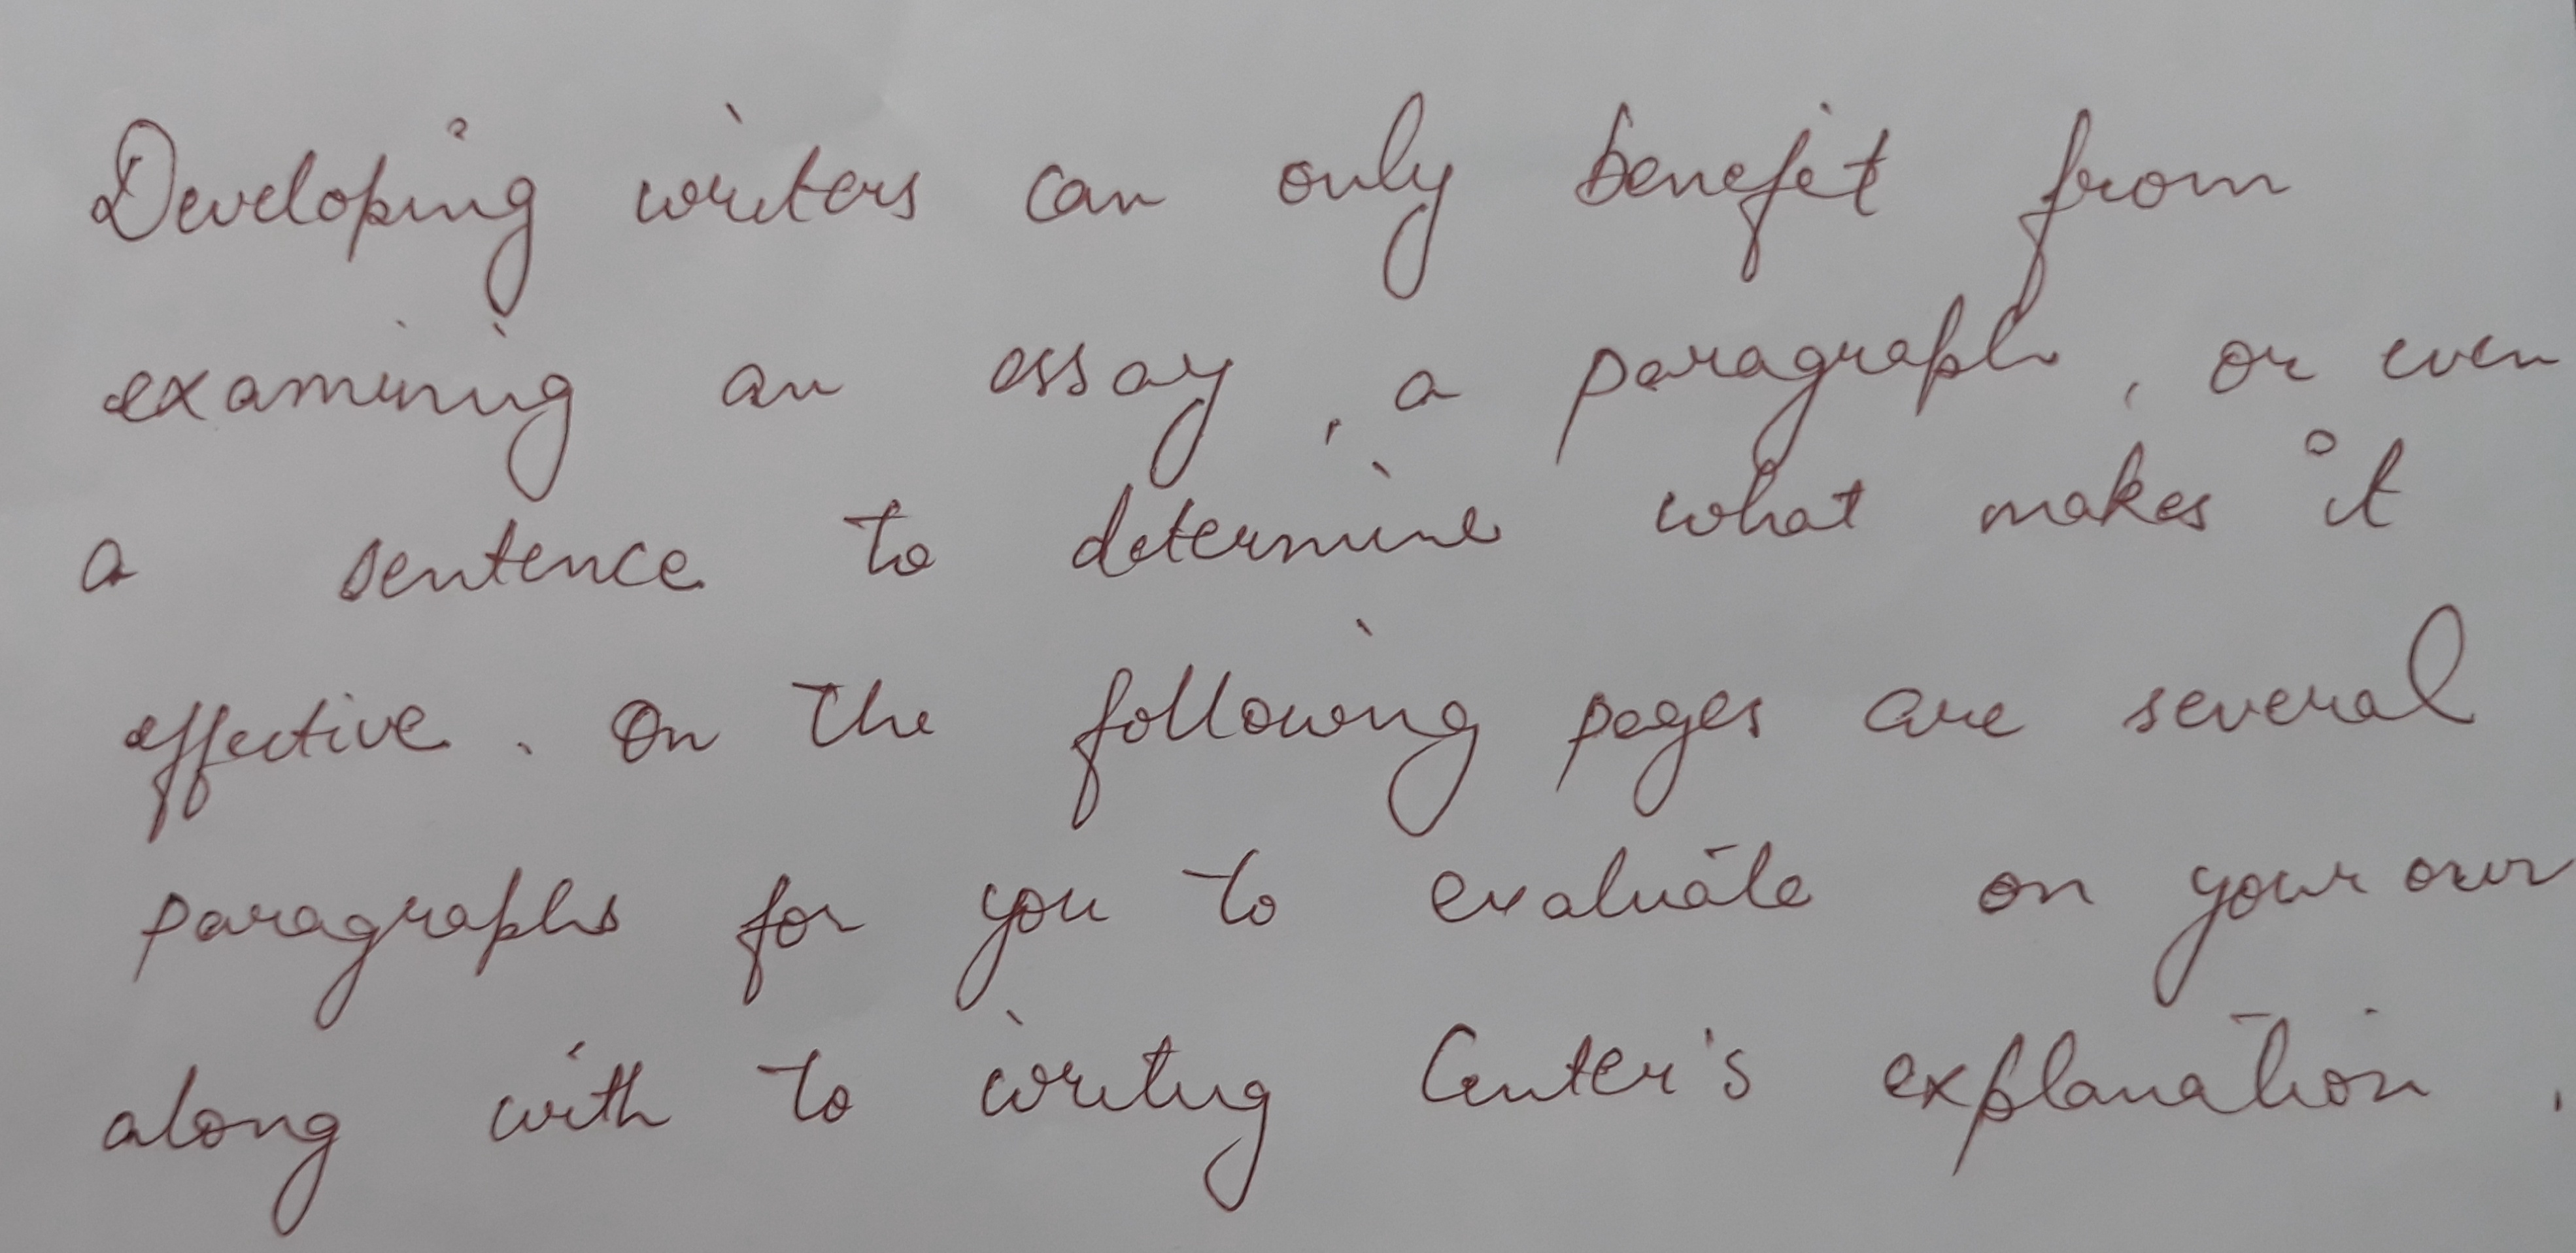 Developing writers can only benefit from
examining an essay, a paragraph, or even
a sentence to determine what makes it
effective. On the following pages are several
paragraphs for you to evaluate on your own
along with to writing Center's explanation.